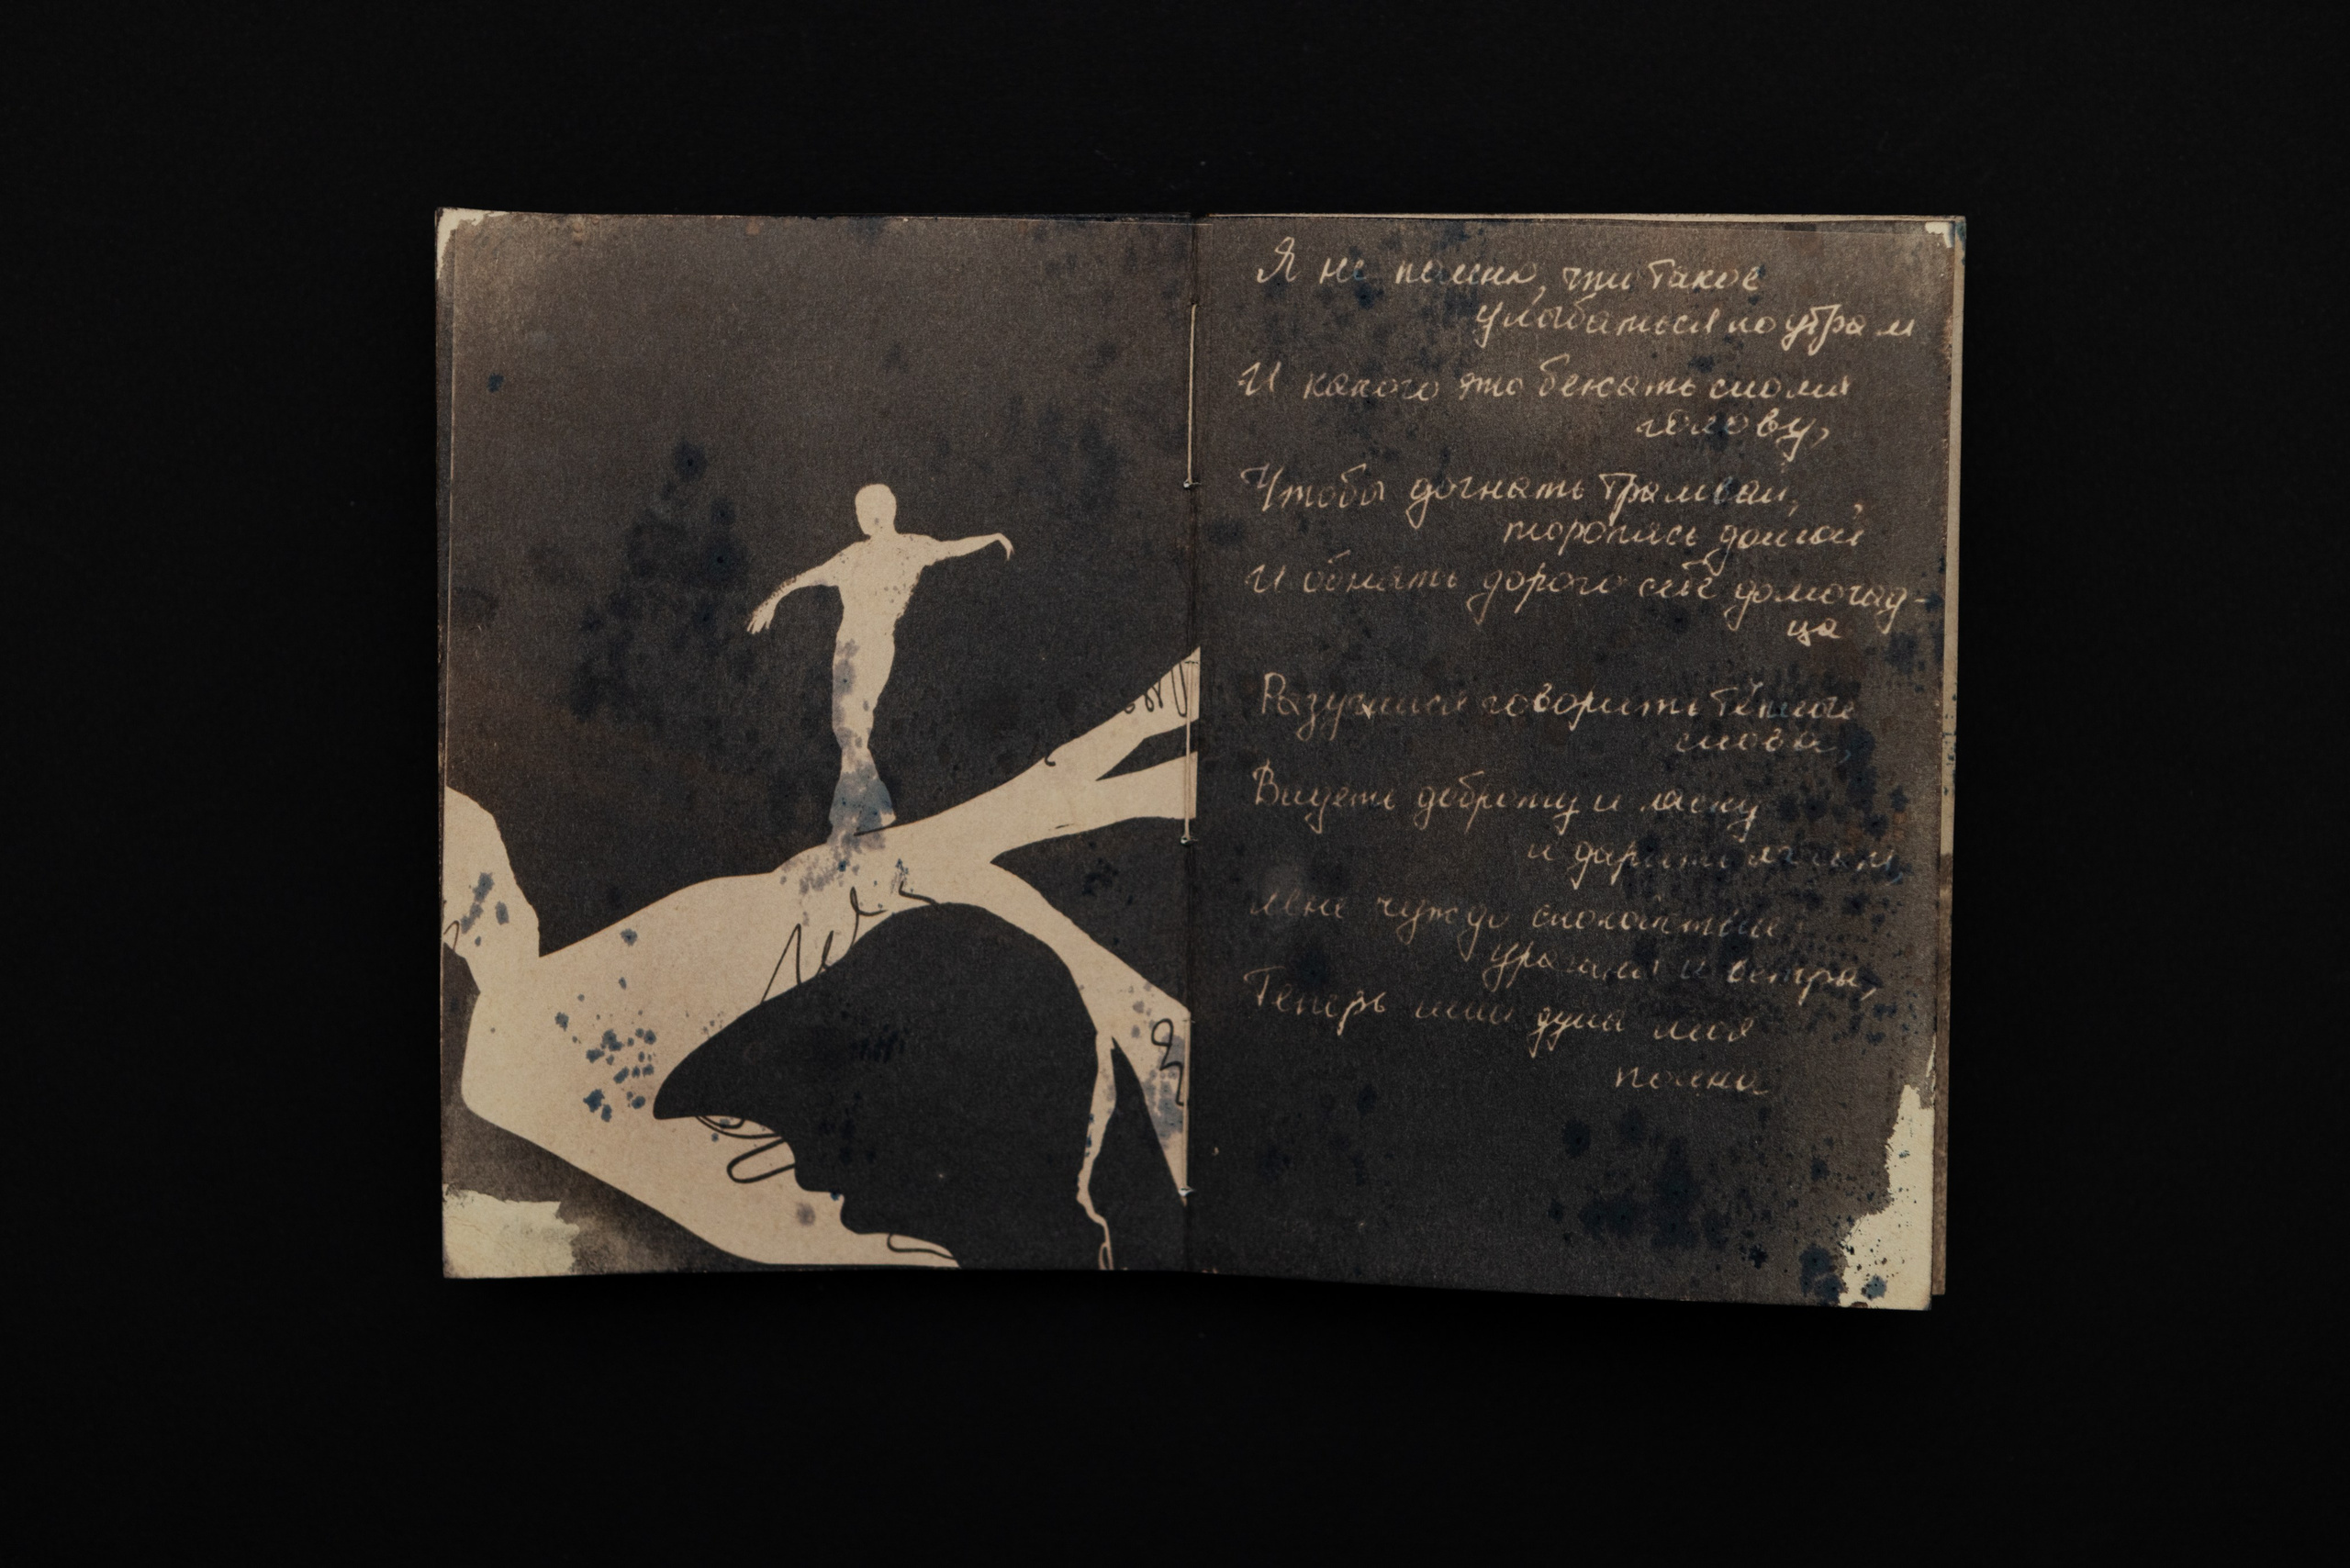 Я не помню, что такое
улыбаться по утрам
И каково это бежать сломя
голову,
Чтобы догнать трамвай,
торопясь домой
И обнять дорого себе домочад-
ца
Разучился говорить тёплые
слова,
Видеть доброту и ласку
и дарить
Мне чуждо спокойствие
урагана и ветра,
Теперь ими душа моя
полна